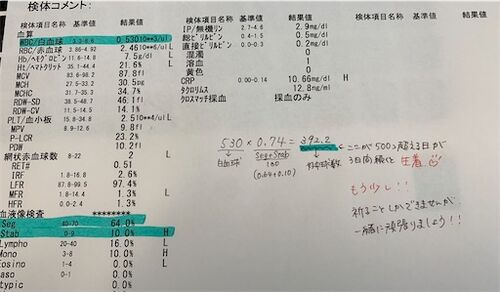 検体コメント:
検体項目名称 基準値 結果値
血算
WBC/白血球 3.3-8.6 0.53010**3/uL
RBC/赤血球 3.86-4.92 2.4610**6/uL L
Hb/ヘモグロビン 11.6-14.8 7.5g/dl L
Ht/ヘマトクリット 35.1-44.4 21.6% L
MCV 83.6-98.2 87.8fl
MCH 27.5-33.2 30.5pg
MCHC 31.7-35.3 34.7%
RDW-SD 38.5-48.7 46.1fl
RDW-CV 11.5-14.5 14.1%
PLT/血小板 15.8-34.8 2.510**4/uL L
MPV 8.9-12.6 9.8fl
P-LCR 23.2%
PDW 10.2fl
網状赤血球数 8-22 2 L
RET# 0.51
IRF 1.8-16.8 2.6%
LFR 87.8-99.5 97.4%
MFR 1.8-14.4 1.3% L
HFR 0.0-2.4 1.3%
血液像検査 ********
Seg 40-70 64.0%
Stab 0-9 10.0% H
Lympho 20-40 16.0% L
Mono 3-8 10.0% H
Eosino 1-4 0.0% L
Baso 0-1 0.0%
0.0%
検体項目名称 基準値 結果値
IP/無機リン 2.7-4.6 2.9mg/dl
総ビリルビン 0.4-1.5 0.5mg/dl
直接ビリルビン 0.0-0.3 0.2mg/dl
混濁 0
溶血 1
黄色 0
CRP 0.00-0.14 10.66mg/dl H
タクロリムス 12.8ng/ml
クロスマッチ採血 採血のみ
530 × 0.74 = 392.2
白血球 Seg+Stab 好中球数
100
(0.64+0.10)
ここが500を超える日が
3日間続くと生着
もう少し!!
祈ることしかできませんが、
一緒に頑張りましょう!!